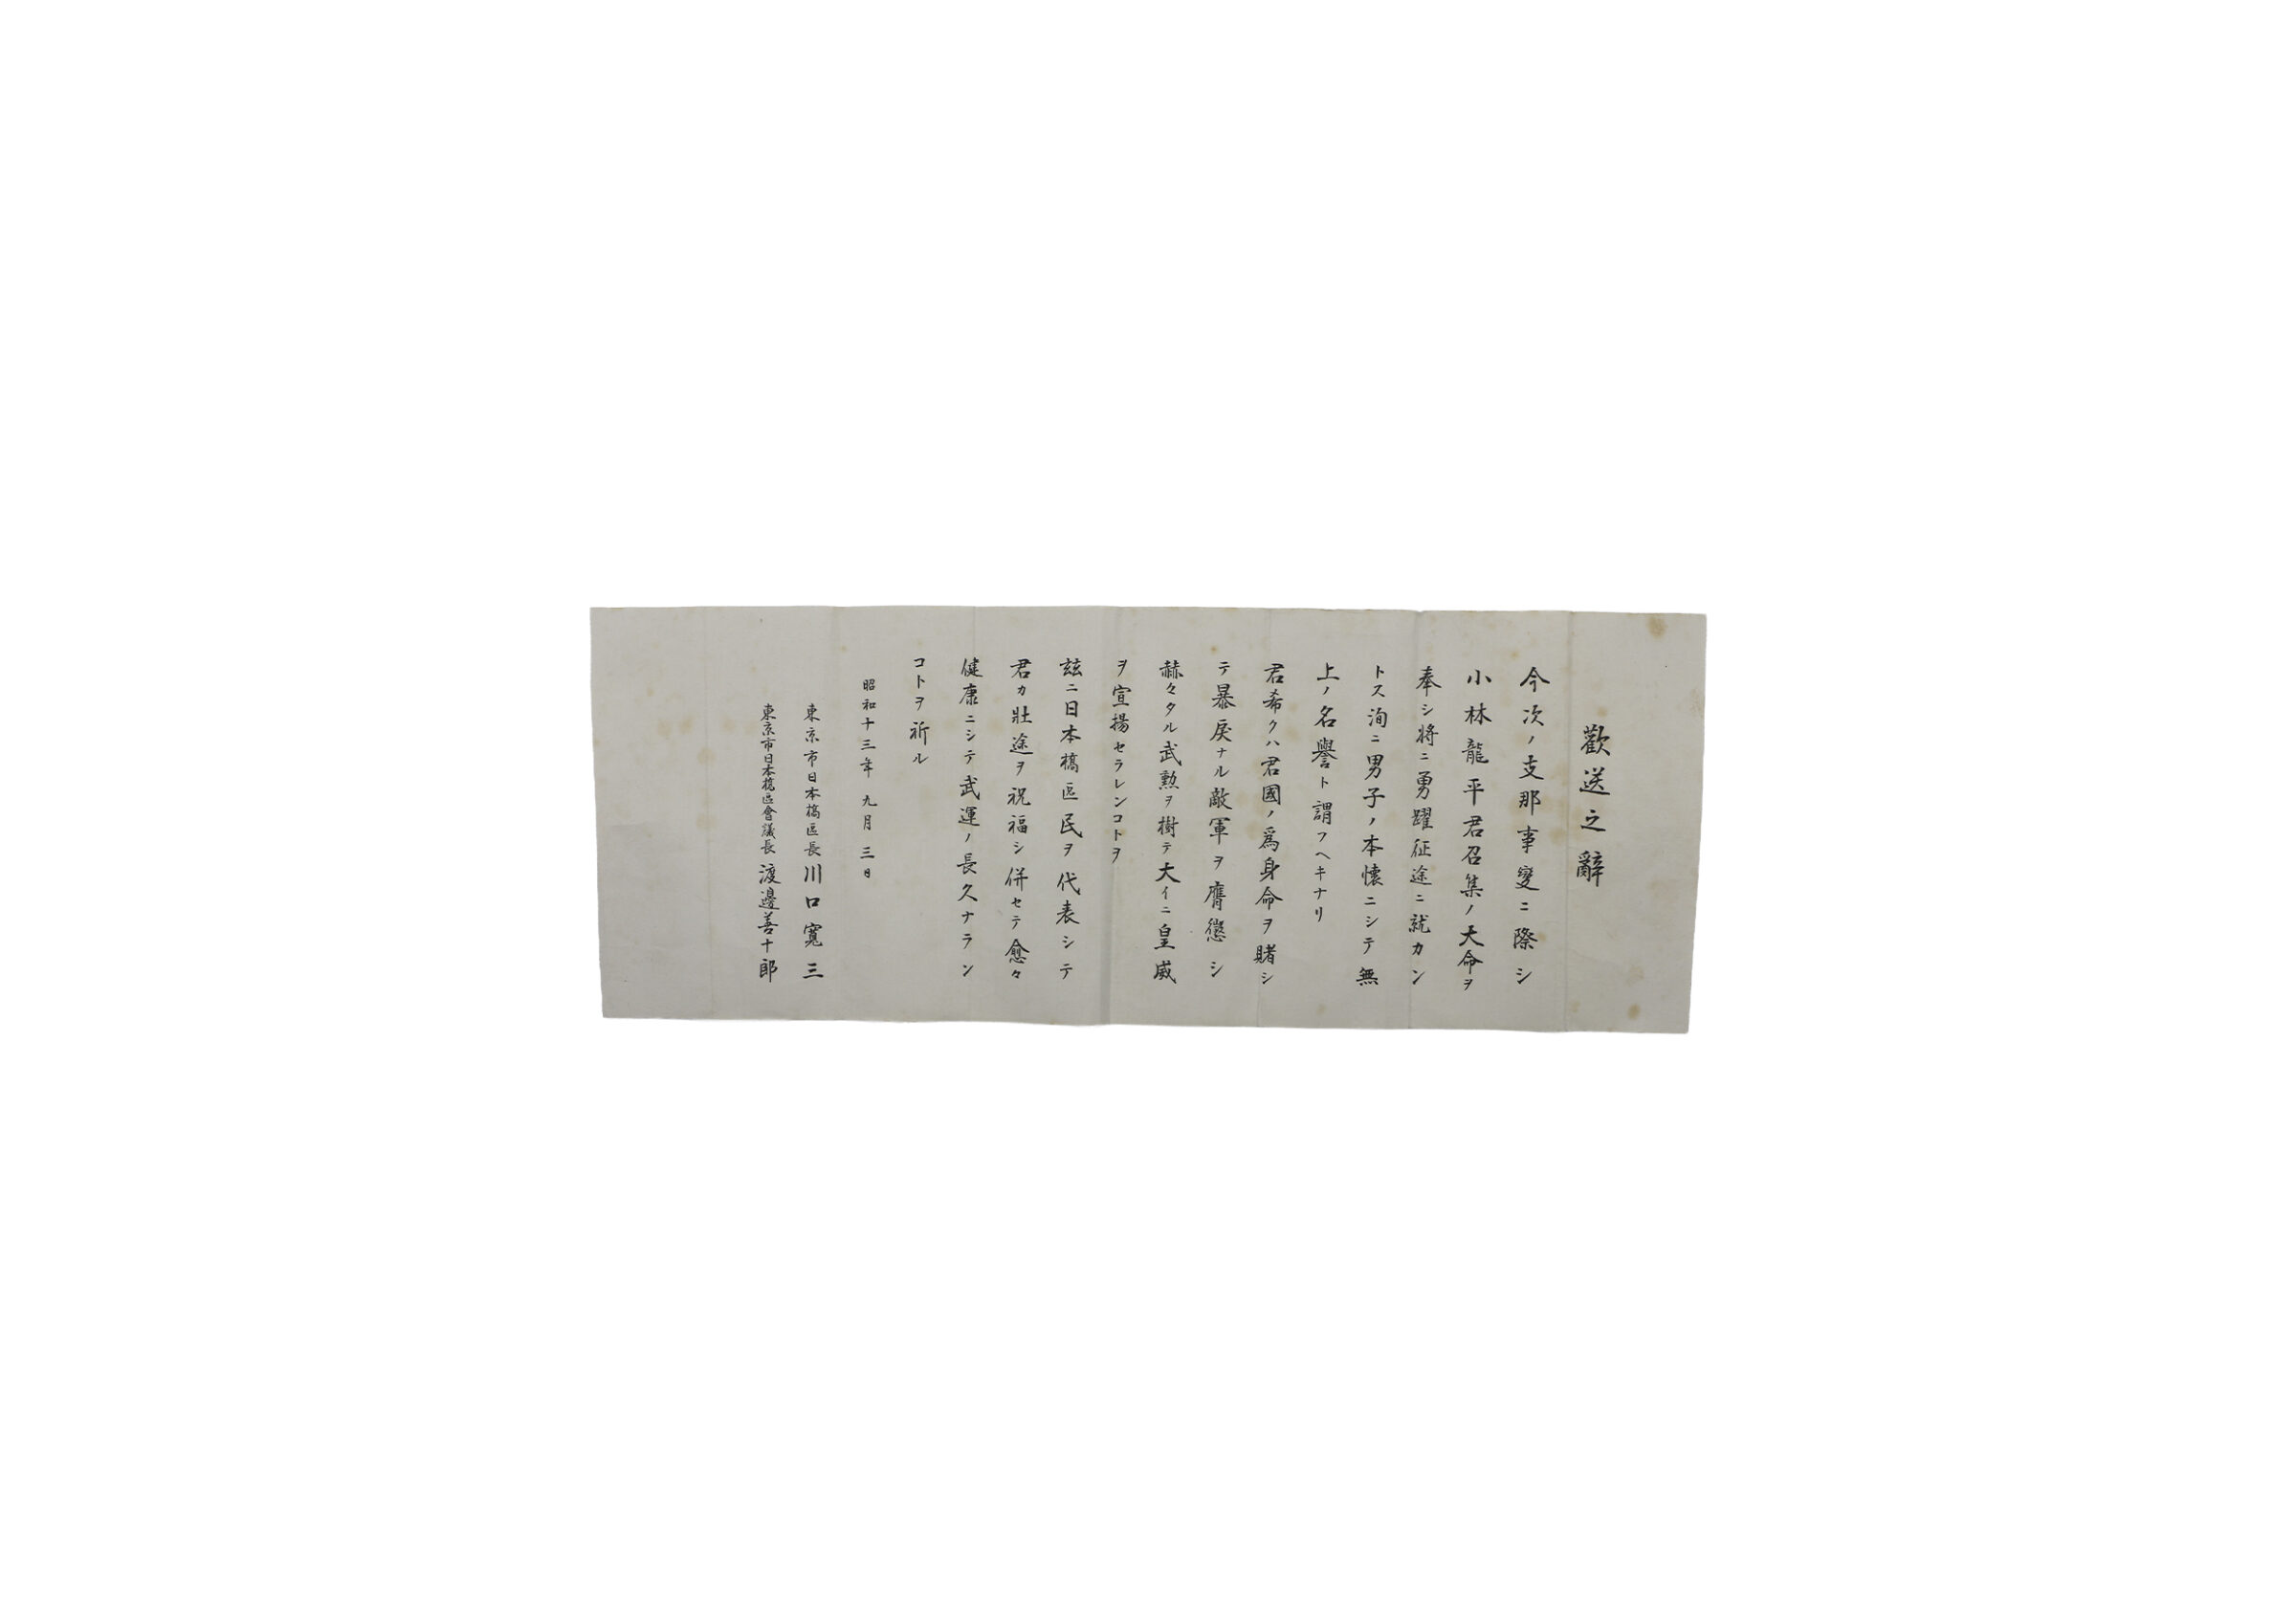 歡送之辭
今次ノ支那事變ニ際シ
小林龍平君召集ノ大命ヲ
奉シ將ニ勇躍征途ニ就カン
トス洵ニ男子ノ本懷ニシテ無
上ノ名譽ト謂フヘキナリ
君希クハ君國ノ爲身命ヲ賭シ
テ暴戻ナル敵軍ヲ膺懲シ
赫々タル武勲ヲ樹テ大イニ皇威
ヲ宣揚セラレンコトヲ
玆ニ日本橋区民ヲ代表シテ
君カ壯途ヲ祝福シ併セテ愈々
健康ニシテ武運ノ長久ナラン
コトヲ祈ル
昭和十三年九月三日
東京市日本橋区長川口寬三
東京市日本橋區會議長渡邊善十郎